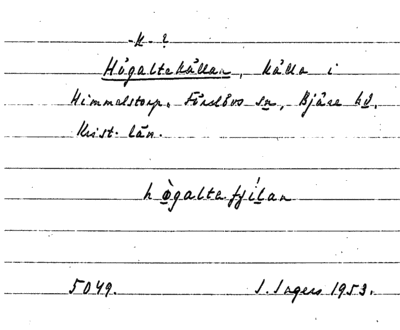 -k- ?
Högaltekällan, källa i
Himmelstorp. Förslövs sn, Bjäre hd,
Krist. län.
h ògaltefjílan
5049. I. Ingers 1953.